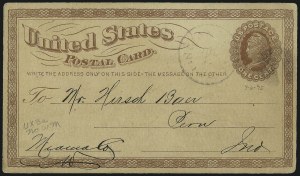 United States
POSTAL CARD.
WRITE THE ADDRESS ONLY ON THIS SIDE - THE MESSAGE ON THE OTHER
To Mr. Hersch Baer
Peru
Miami Co Ind